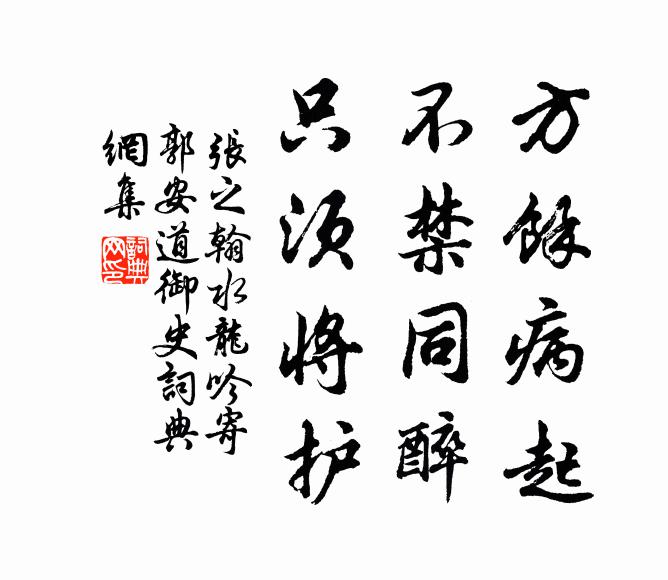 方餘病起
不禁同醉
只須将护
張之翰水龍吟寄
郭安道御史詞典
網集
詞典
网印